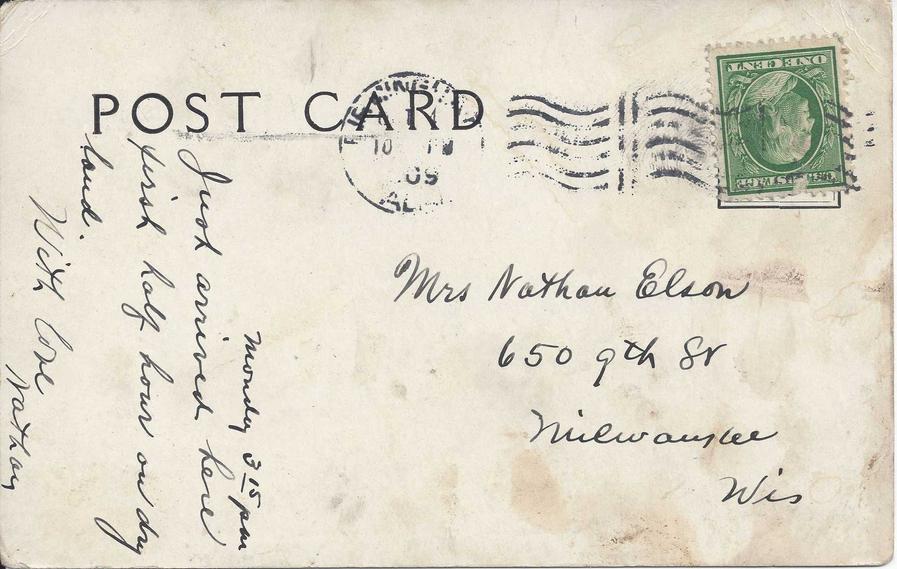 POST CARD
09
ONE CENT
Monday 3 15 pm
Just arrived here
first half hour on dry
land.
With love
Nathan
Mrs Nathan Elson
650 9th St
Milwaukee
Wis